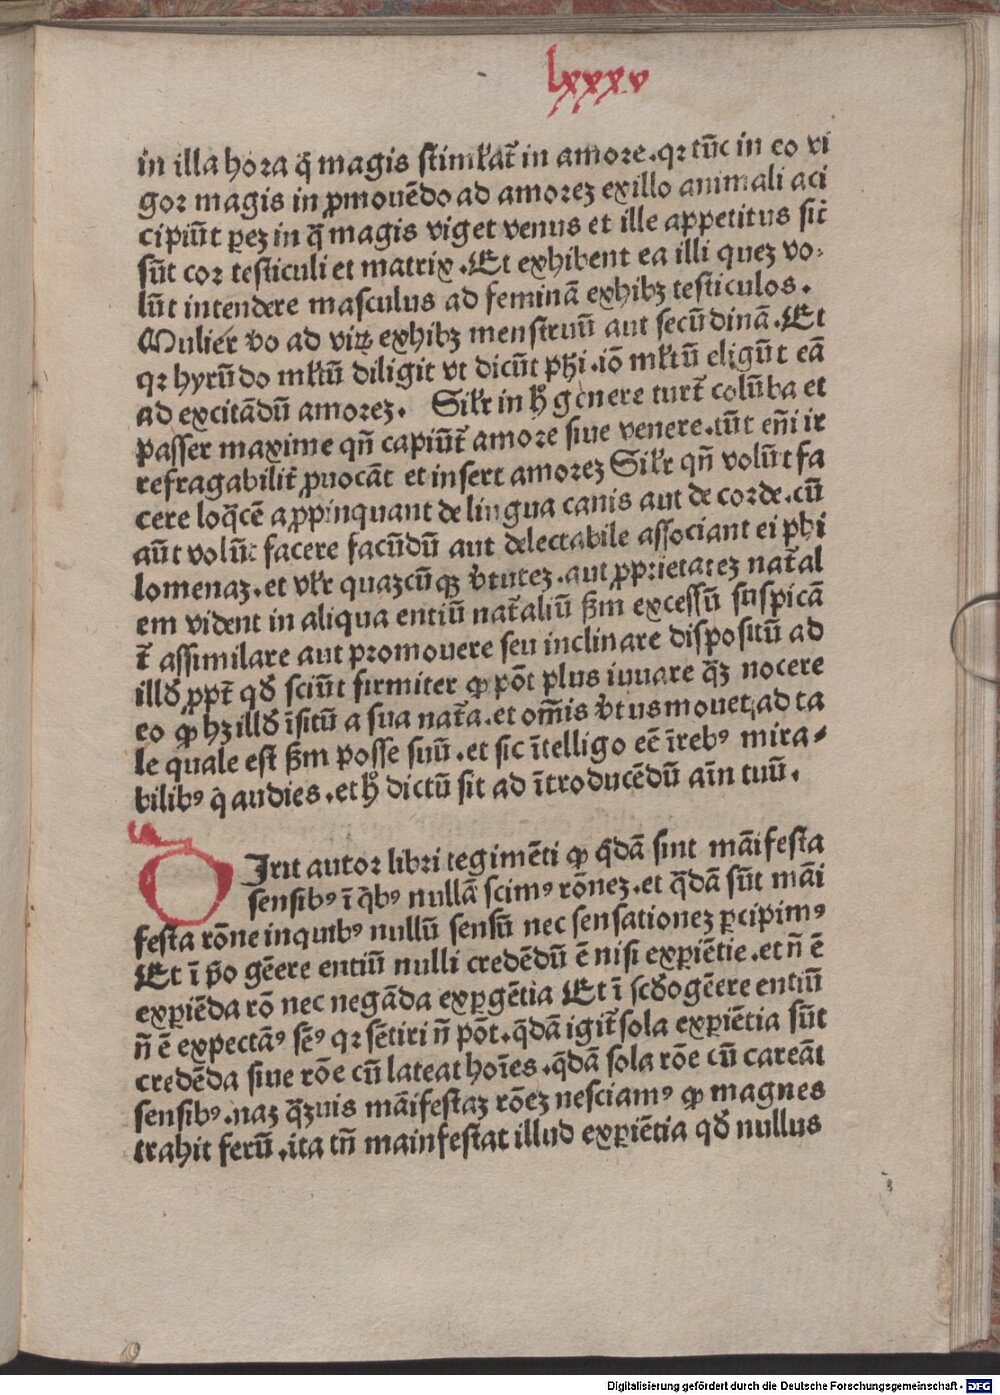 lxxxv
in illa hora q̄ magis stimłat̄ in amore. qꝛ tūc in eo vi
gor magis in ꝓmouēdo ad amoreꝫ ex illo animali aci
cipiūt ꝑeꝫ in q̄ magis viget venus et ille appetitus sic̄
sūt cor testiculi et matrix. Et exhibent ea illi queꝫ vo⸗
lūt intendere masculus ad feminā exhibꝫ testiculos.
Mulier ꝟo ad viꝝ exhibꝫ menstruū aut secūdinā. Et
qꝛ hyrūdo młtū diligit vt dicūt pħi. iō młtū eligūt eā
ad excitādū amoreꝫ. Siłr in hͦ genere turt̄ colūba et
passer maxime qn̄ capiūt̄ amore siue venere. tūt eñi ir
refragabilit̄ ꝓuocāt et insert amoreꝫ Siłr qn̄ volūt fa
cere loq̄cē aꝓpinquant de lingua canis aut de corde. cū
aūt volūt facere facūdū aut delectabile associant ei phi
lomenaꝫ. et vłr quaꝫcūqꝫ ꝟtuteꝫ. aut ꝓprietateꝫ nat̄al
em vident in aliqua entiū nat̄aliū ẜm excessū suspicā
t̄ assimilare aut promouere seu inclinare dispositū ad
illđ ꝓpt̄ qđ sciūt firmiter ꝙ pōt plus iuuare q̄ꝫ nocere
eo ꝙ hꝫ illđ īsitū a sua nat̄a. et om̄is ꝟtus mouet ad ta
le quale est ẜm posse suū. et sic ītelligo eē ī rebꝰ mira⸗
bilibꝰ q̄ audies. et hͦ dictū sit ad ītroducēdū aīn tuū.
DIxit autor libri regimēti ꝙ q̄dā sint māifesta
sensibꝰ ī q̄bꝰ nullā scimꝰ rōneꝫ. et q̄dā sūt māi
festa rōne in quibꝰ nullū sensū nec sensationeꝫ ꝑcipimꝰ
Et ī p̄o gēere entiū nulli credēdū ē nisi exꝑiētie. et ñ ē
exꝑiēda rō nec negāda exꝑgētia Et ī scđo gēere entiū
ñ ē expectāꝰ sēꝰ qꝛ sētiri ñ pōt. q̄dā igit̄ sola exꝑiētia sūt
credēda siue rōe cū lateat hoīes. q̄dā sola rōe cū careāt
sensibꝰ. naꝫ q̄ꝫuis māifestaꝫ rōeꝫ nesciamꝰ ꝙ magnes
trahit ferū. ita tñ mainfestat illud exꝑiētia qđ nullus
Digitalisierung gefördert durch die Deutsche Forschungsgemeinschaft - DFG